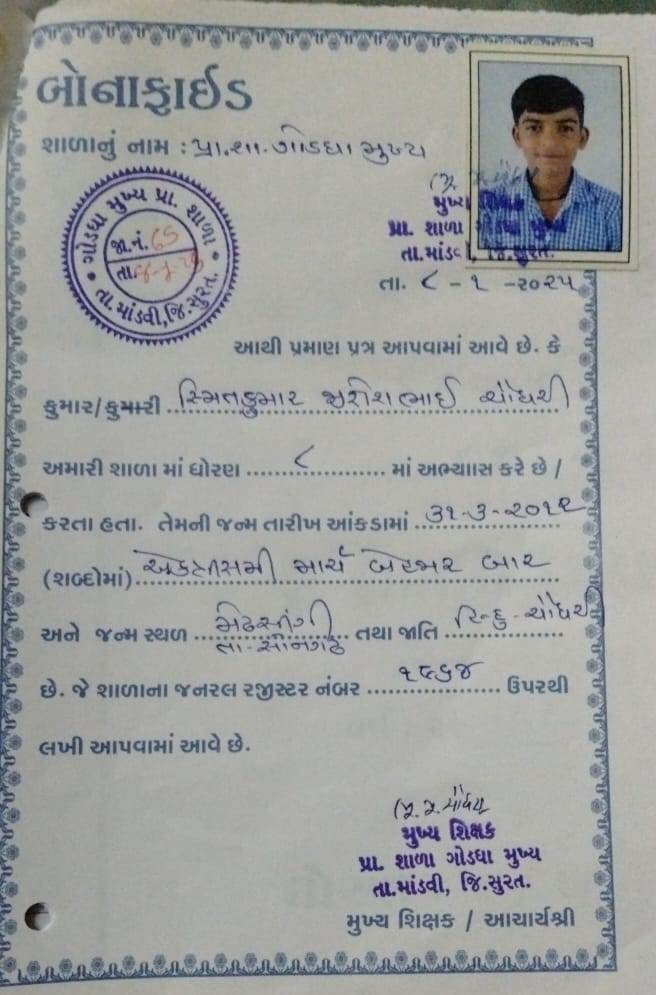 બોનાફાઈડ
શાળાનું નામ : પ્રા.શા. ગોડધા મુખ્ય
ગોડધા મુખ્ય પ્રા. શાળા
જા.નં. 65
તા.
તા. માંડવી, જિ.સુરત.
મુખ્ય શિક્ષક
પ્રા. શાળા ગોડધા મુખ્ય
તા.માંડવી, જિ.સુરત.
તા. ૮ - ૧ - ૨૦૨૫
આથી પ્રમાણ પત્ર આપવામાં આવે છે. કે
કુમાર/કુમારી સ્મિતકુમાર સુરેશભાઈ ચૌધરી
અમારી શાળા માં ધોરણ ૮ માં અભ્યાસ કરે છે /
કરતા હતા. તેમની જન્મ તારીખ આંકડામાં ૩૧-૩-૨૦૧૨
(શબ્દોમાં) એકત્રીસમી માર્ચ બેહજાર બાર
અને જન્મ સ્થળ મેઢસીંગી તથા જાતિ હિન્દુ - ચૌધરી
તા- સોનગઢ
છે. જે શાળાના જનરલ રજીસ્ટર નંબર ૧૬૬૪ ઉપરથી
લખી આપવામાં આવે છે.
મુખ્ય શિક્ષક
પ્રા. શાળા ગોડધા મુખ્ય
તા.માંડવી, જિ.સુરત.
મુખ્ય શિક્ષક / આચાર્યશ્રી